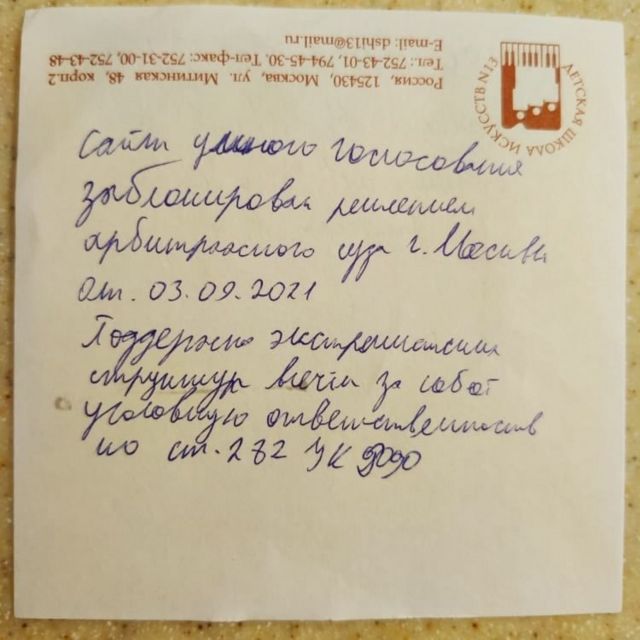 Россия, 125430, Москва, ул. Митинская 48, корп.2
Тел.: 752-43-01, 794-45-30. Тел-факс: 752-31-00, 752-43-48
E-mail: dshi13@mail.ru
ДЕТСКАЯ ШКОЛА ИСКУССТВ N13
Сайт умного голосования
заблокирован решением
арбитражного суда г. Москвы
от. 03.09.2021
Поддержка экстремистских
структур за собой
уголовную ответственность
по ст. 282 УК